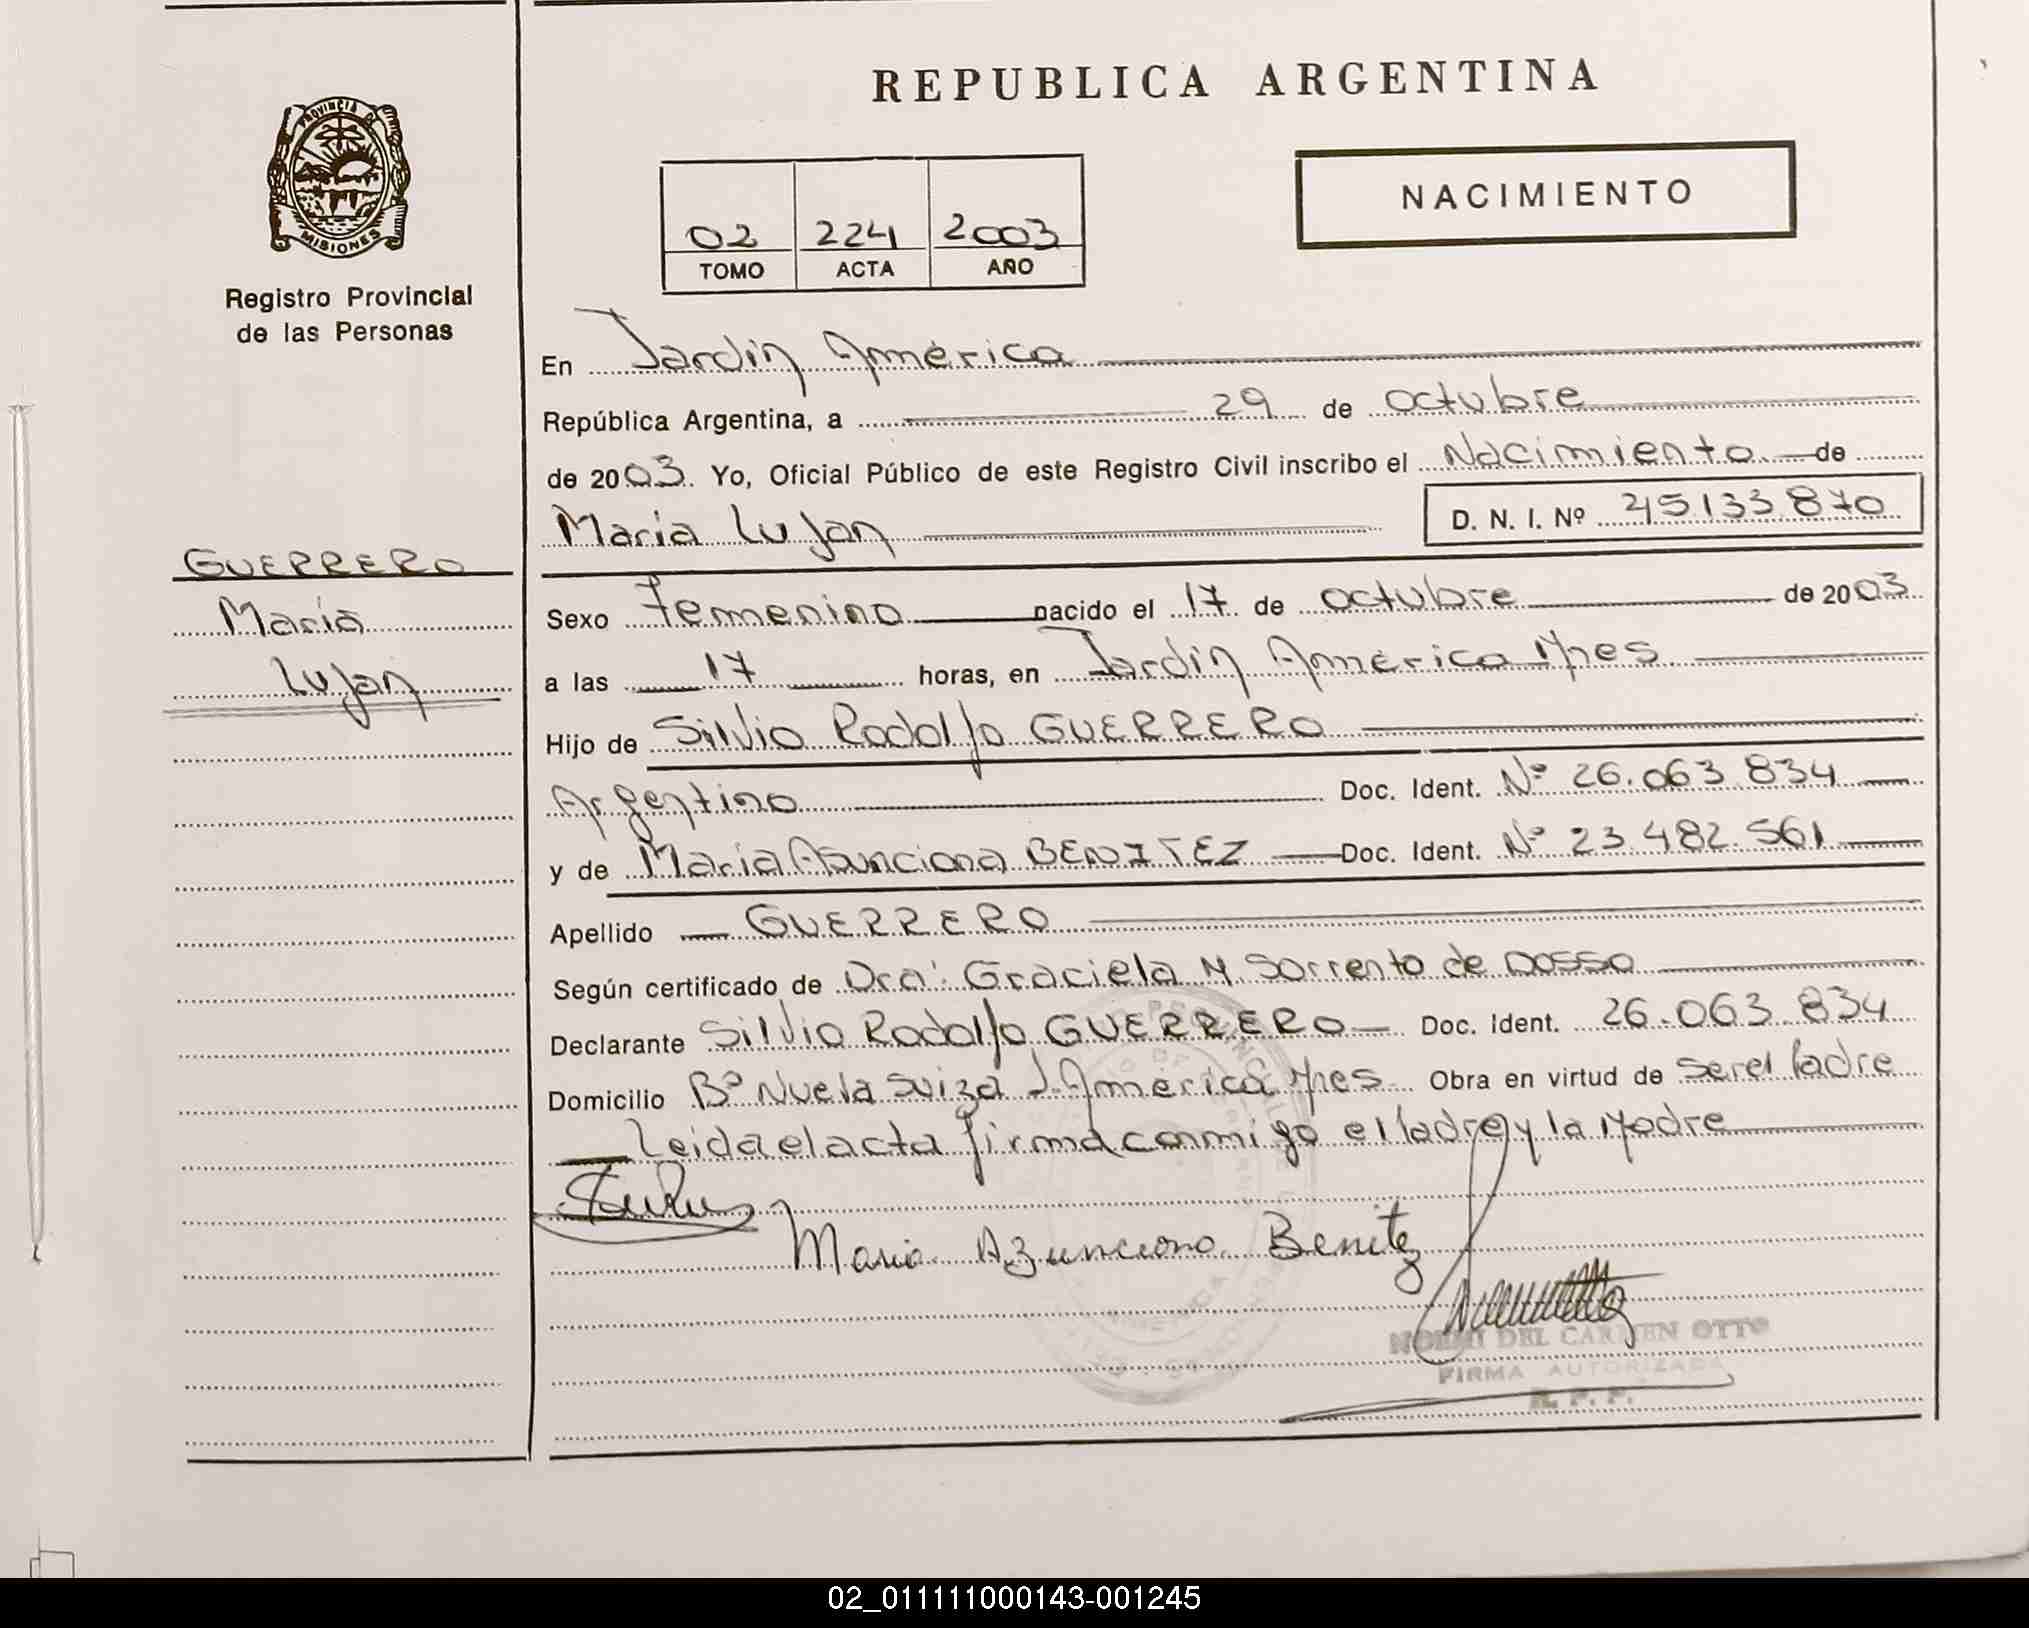 REPUBLICA ARGENTINA
PROVINCIA DE
MISIONES
Registro Provincial
de las Personas
NACIMIENTO
02 224 2003
TOMO ACTA AÑO
En Jardín América
República Argentina, a 29 de octubre
de 2003. Yo, Oficial Público de este Registro Civil inscribo el Nacimiento de
María Lujan D. N. I. Nº 45133870
GUERRERO
María
Lujan
Sexo Femenino nacido el 17 de octubre de 2003
a las 17 horas, en Jardín América Mnes
Hijo de Silvio Rodolfo GUERRERO
Argentino Doc. Ident. Nº 26.063.834
y de María Asunciona BENITEZ Doc. Ident. Nº 23.482.561
Apellido GUERRERO
Según certificado de Dra: Graciela M. Sorrento de Dosso
Declarante Silvio Rodolfo GUERRERO Doc. Ident. 26.063.834
Domicilio Bº Nueva Suiza J. América Mnes Obra en virtud de ser el Padre
Leida el acta firma conmigo el Padre y la Madre
Maria Azunciona Benitez
DEL CARMEN OTTO
FIRMA AUTORIZADA
R. P. P.
02_011111000143-001245